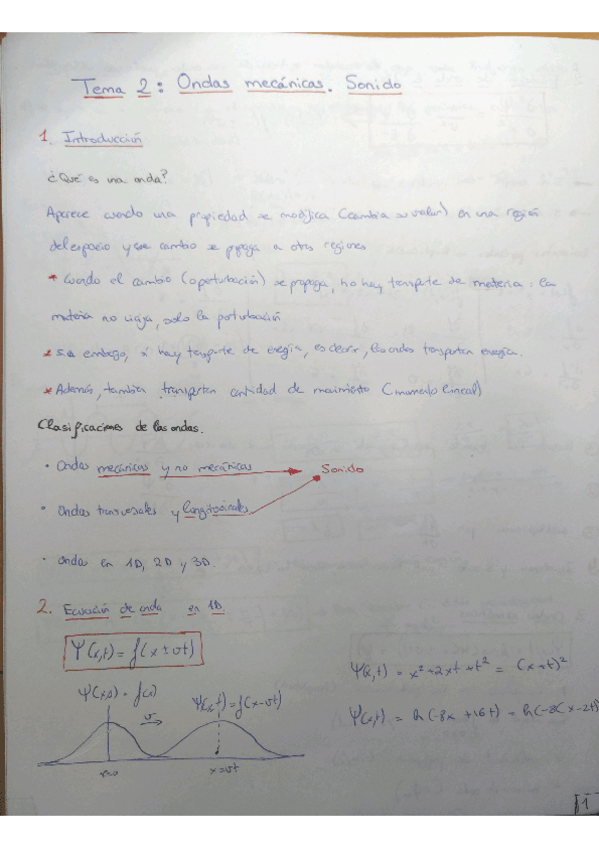 Tema 2: Ondas mecánicas. Sonido
1. Introducción
¿Qué es una onda?
Aparece cuando una propiedad se modifica (cambia su valor) en una región
del espacio y ese cambio se propaga a otras regiones
* Cuando el cambio (o perturbación) se propaga, no hay transporte de materia: la
materia no viaja, solo la perturbación
* Sin embargo, sí hay transporte de energía, es decir, las ondas transportan energía.
* Además, también transportan cantidad de movimiento (momento lineal)
Clasificaciones de las ondas.
• Ondas mecánicas y no mecánicas → Sonido
• Ondas transversales y longitudinales
• Ondas en 1D, 2D y 3D.
2. Ecuación de onda en 1D
Ψ(x,t) = f(x ± vt)
Ψ(x,t) = x² + 2xt + t² = (x+t)²
Ψ(x,0) = f(x) v Ψ(x,t) = f(x-vt)
Ψ(x,t) = ln(-8x + 16t) = ln(-8(x-2t)
x=0 x=vt
1